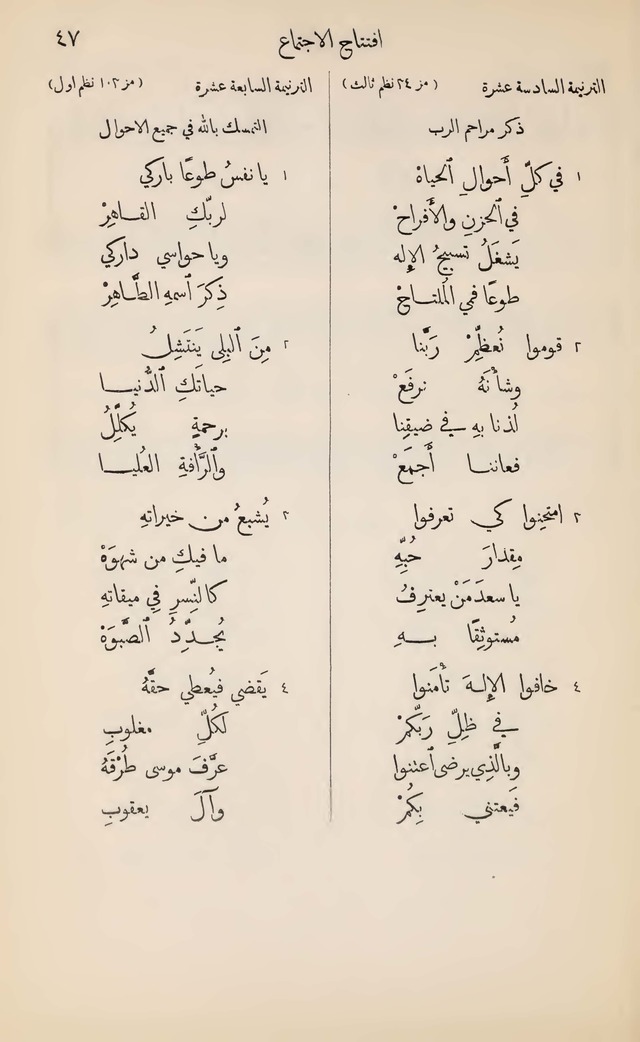 افتتاح الاجتماع ٤٧
الترنيمة السادسة عشرة (مز ٣٤ نظم ثالث)
ذكر مراحم الرب
١ في كلِّ أَحوالِ ٱلحياهْ
في ٱلحزنِ والأَفراحْ
يَشغَلُ تسبيحُ الإِله
طوعًا فمي المُلتاحْ
٢ قوموا نُعظِّمْ رَبَّنا
وشأْنَهُ نرفَعْ
لُذنا بهِ في ضيقِنا
فعاننا أَجمَعْ
٣ امتحِنوا كي تعرفوا
مِقدارَ حُبِّهِ
يا سعدَ مَنْ يعترفُ
مُستوثِقًا بهِ
٤ خافوا الإِلهَ تأْمَنوا
في ظلِّ رَبِّكمْ
وبالَّذي يرضى ٱعتنوا
فَيعتني بِكُمْ
الترنيمة السابعة عشرة (مز ١٠٣ نظم اول)
التمسك بالله في جميع الاحوال
١ يا نفسُ طوعًا باركي
لربّكِ القاهِرْ
ويا حواسي داركي
ذِكرَ ٱسمهِ الطَّاهِرْ
٢ مِنَ ٱلبِلى يَنتَشِلُ
حياتَكِ ٱلدُّنيا
برحمةٍ يُكلِّلُ
وٱلرَّأفةِ العُليا
٣ يُشبعُ من خيراتهِ
ما فيكِ من شهوَهْ
كالنِّسرِ في ميقاتهِ
يُجدِّدُ ٱلصَّبوَهْ
٤ يَقضي فيُعطي حقَّهُ
لكُلِّ مغلوبِ
عرَّفَ موسى طُرْقَهُ
وآلَ يعقوبِ